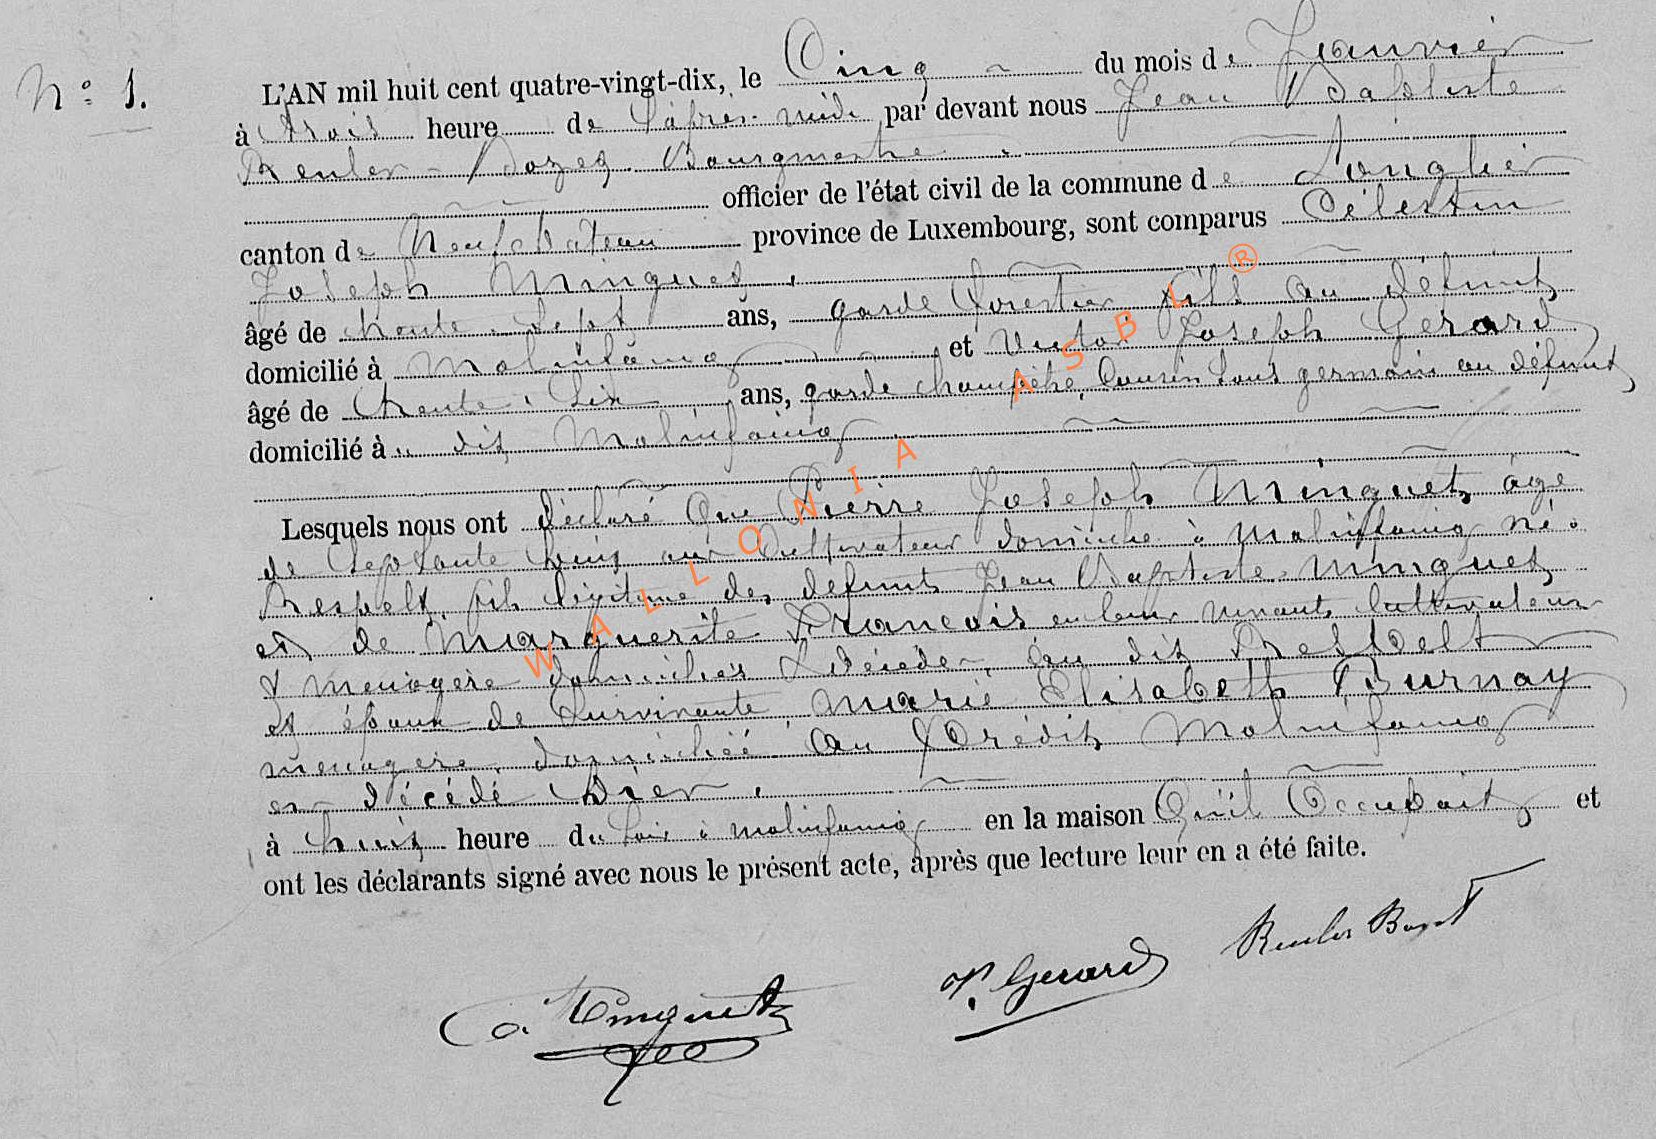 N° 1.
L'AN mil huit cent quatre-vingt-dix, le Cinq du mois de Janvier
à trois heure de l'après-midi par devant nous Jean Baptiste
Reuler - Bourgmestre
officier de l'état civil de la commune de Longlier
canton de Neufchateau province de Luxembourg, sont comparus Célestin
Joseph Minguet
âgé de trente-sept ans, garde forestier fils au défunt
domicilié à Molinfaing et Victor Joseph Gerard
âgé de trente-six ans, garde champêtre, Cousin sous germain au défunt
domicilié à dit Molinfaing
Lesquels nous ont déclaré que Pierre Joseph Minguet, âgé
de septante huit ans Cultivateur domicilié à Molinfaing né à
Respelt, fils légitime des défunts Jean Baptiste Minguet
et de Marguerite François en leur vivants Cultivateur
& menagère domiciliés & décédés au dit Respelt
et époux de survivante Marie Elisabeth Burnay
menagère domiciliée au prédit Molinfaing
est décédé hier
à huit heure du soir à Molinfaing en la maison qu'il occupait et
ont les déclarants signé avec nous le présent acte, après que lecture leur en a été faite.
C. Minguet
V. Gerard
Reuler
WALLONIA ASBL ®